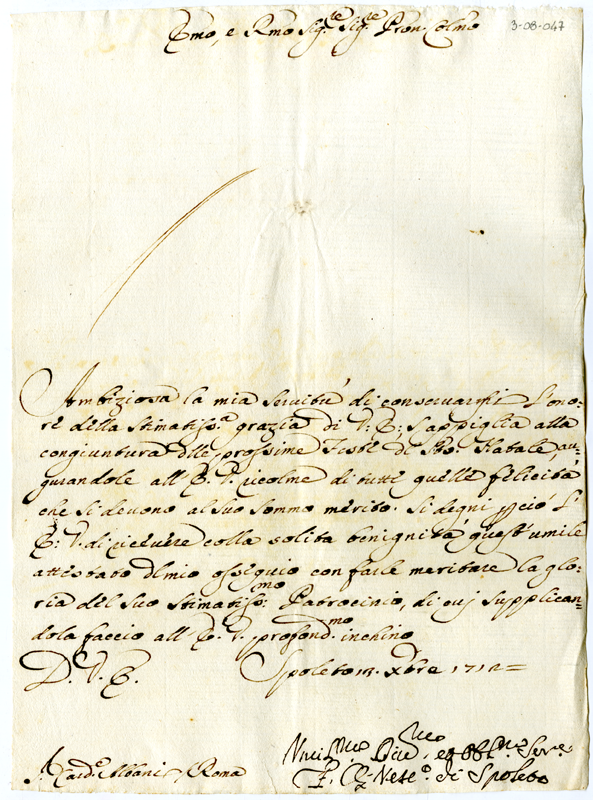 Emo, e Rmo Sig.re Sig.re Pron. Colmo
3-08-047
Ambiziosa la mia servitu' di conservarsi l'ono-
re della stimatiss.a grazia di V: E: s'appiglia alla
congiuntura delle prossime Feste di Sto: Natale, au-
gurandole all'E. V. ricolme di tutte quelle felicità
che si devono al suo sommo merito. Si degni per ciò l'
E: V. di ricevere colla solita benignità quest'umile
attestato del mio ossequio con farle meritare la glo-
ria del suo stimatiss:mo Patrocinio, di cui supplican-
dola faccio all'E. V. profond.mo inchino
D. V. E. Spoleto 13. Xbre 1712=
Card.e Albani, Roma
Umiliss.mo Div.mo, ed Obl.mo Ser.e
di Spoleto